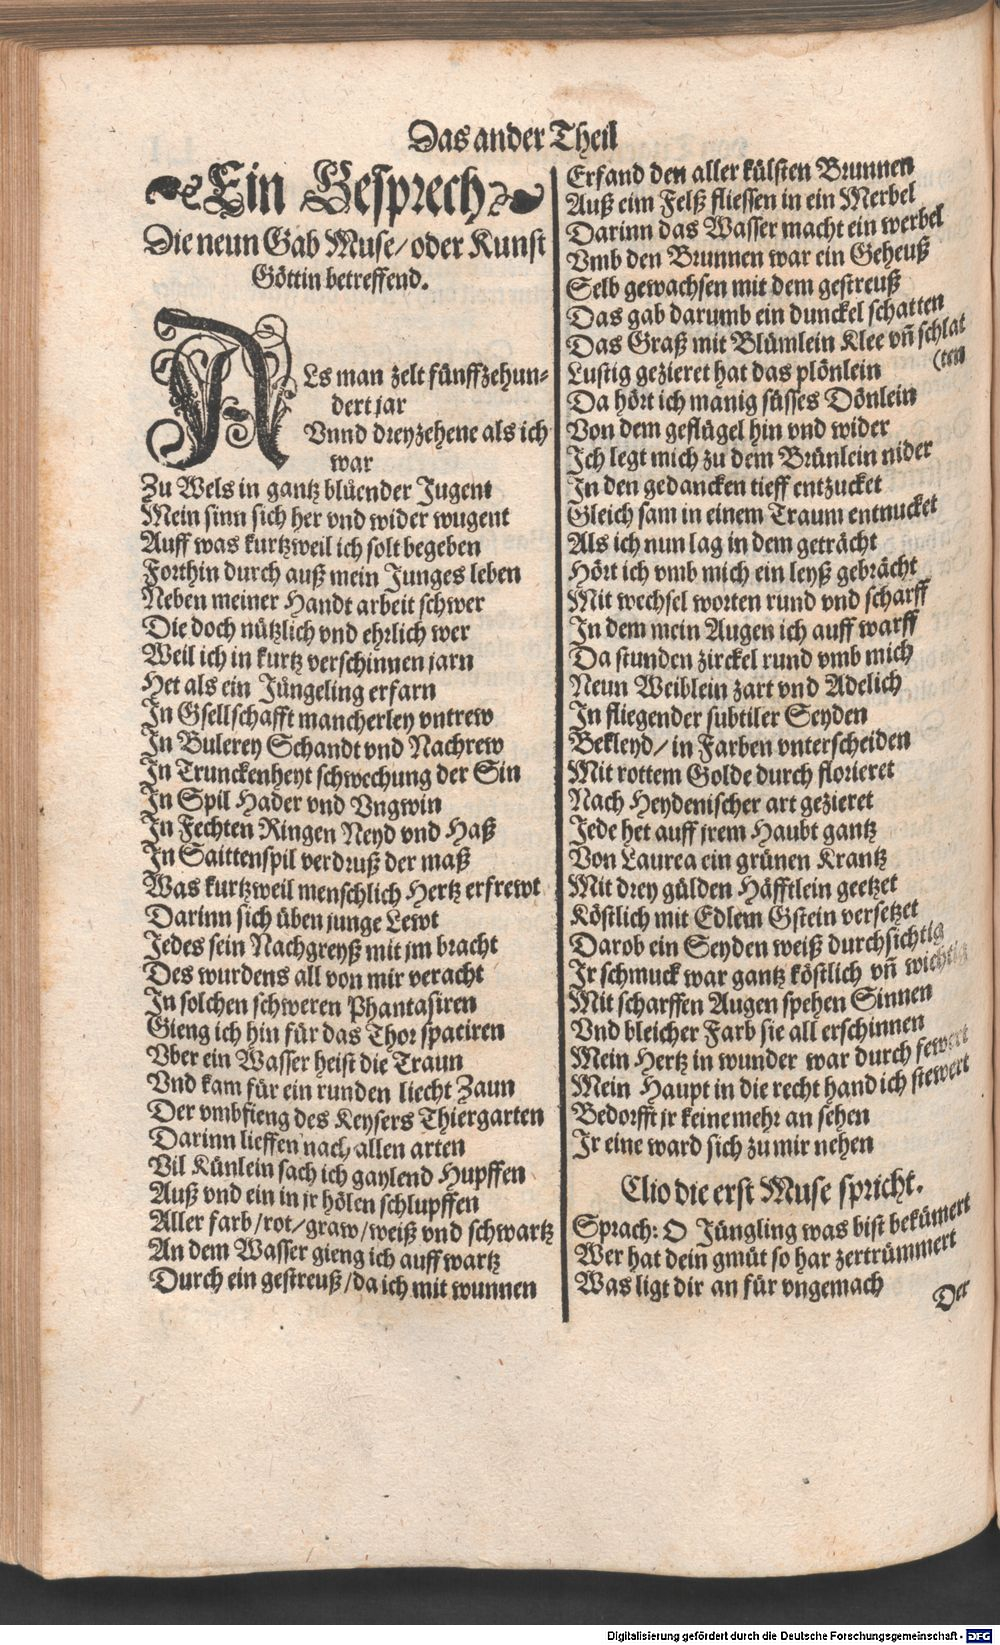 Das ander Theil
Ein Gesprech
Die neun Gab Muse/ oder Kunst
Göttin betreffend.
ALs man zelt fünffzehun-
dert jar
Vnnd dreyzehene als ich
war
Zu Wels in gantz blüender Jugent
Mein sinn sich her vnd wider wugent
Auff was kurtzweil ich solt begeben
Forthin durch auß mein Junges leben
Neben meiner Handt arbeit schwer
Die doch nützlich vnd ehrlich wer
Weil ich in kurtz verschinnen jarn
Het als ein Jüngeling erfarn
In Gsellschafft mancherley vntrew
In Bulerey Schandt vnd Nachrew
In Trunckenheyt schwechung der Sin
In Spil Hader vnd Vngwin
In Fechten Ringen Neyd vnd Haß
In Saittenspil verdruß der maß
Was kurtzweil menschlich Hertz erfrewt
Darinn sich üben junge Lewt
Jedes sein Nachgreyß mit jm bracht
Des wurdens all von mir veracht
In solchen schweren Phantasiren
Gieng ich hin für das Thor spatiren
Vber ein Wasser heist die Traun
Vnd kam für ein runden liecht Zaun
Der vmbfieng des Keysers Thiergarten
Darinn lieffen nach allen arten
Vil Künlein sach ich gaylend Hupffen
Auß vnd ein in jr hölen schlupffen
Aller farb/ rot/ graw/ weiß vnd schwartz
An dem Wasser gieng ich auffwartz
Durch ein gestreuß/ da ich mit wunnen
Erfand den aller külsten Brunnen
Auß eim Felß fliessen in ein Merbel
Darinn das Wasser macht ein werbel
Vmb den Brunnen war ein Geheuß
Selb gewachsen mit dem gestreuß
Das gab darumb ein dunckel schatten
Das Graß mit Blümlein Klee vñ schlat
(ten
Lustig gezieret hat das plönlein
Da hört ich manig süsses Dönlein
Von dem geflügel hin vnd wider
Ich legt mich zu dem Brünlein nider
In den gedancken tieff entzucket
Gleich sam in einem Traum entnucket
Als ich nun lag in dem geträcht
Hört ich vmb mich ein leyß gebrächt
Mit wechsel worten rund vnd scharff
In dem mein Augen ich auff warff
Da stunden zirckel rund vmb mich
Neun Weiblein zart vnd Adelich
In fliegender subtiler Seyden
Bekleyd/ in Farben vnterscheiden
Mit rottem Golde durch florieret
Nach Heydenischer art gezieret
Jede het auff jrem Haubt gantz
Von Laurea ein grünen Krantz
Mit drey gülden Häfftlein geetzet
Köstlich mit Edlem Gstein versetzet
Darob ein Seyden weiß durchsichtig
Ir schmuck war gantz köstlich vñ wichtig
Mit scharffen Augen spehen Sinnen
Vnd bleicher Farb sie all erschinnen
Mein Hertz in wunder war durch fewert
Mein Haupt in die recht hand ich stewert
Bedorfft jr keine mehr an sehen
Ir eine ward sich zu mir nehen
Clio die erst Muse spricht.
Sprach: O Jüngling was bist bekümert
Wer hat dein gmüt so har zertrümmert
Was ligt dir an für vngemach
Der
Digitalisierung gefördert durch die Deutsche Forschungsgemeinschaft - DFG